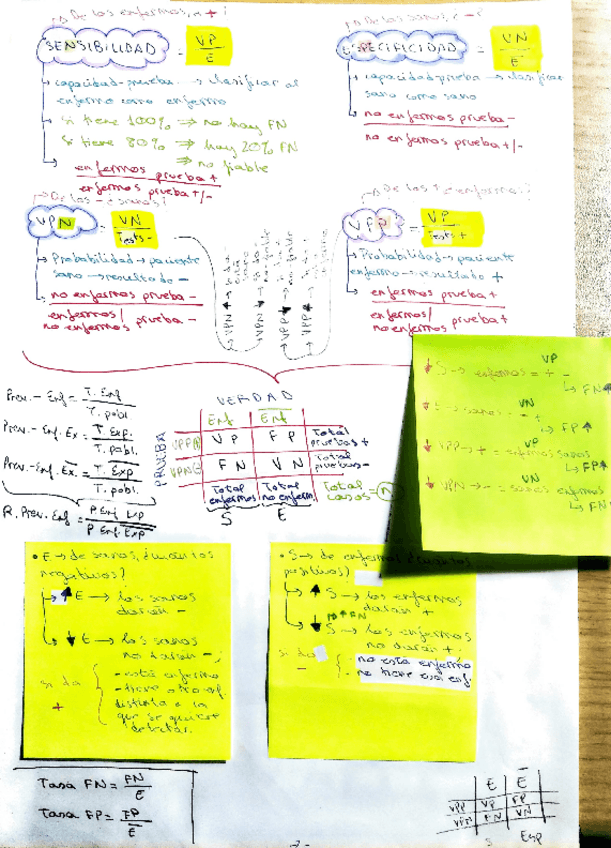 De los enfermos, a + ¿
SENSIBILIDAD = VP / E
capacidad prueba → clasificar al
enfermo como enfermo
si tiene 100% ⇒ no hay FN
si tiene 80% ⇒ hay 20% FN
⇒ no fiable
enfermos prueba +
enfermos prueba +/-
De los sanos,
ESPECIFICIDAD = VN / E̅
capacidad prueba → clasificar
sano como sano
no enfermos prueba -
no enfermos prueba +/-
De los -
VPN = VN / Tests -
Probabilidad → paciente
sano → resultado -
no enfermos prueba -
enfermos/
no enfermos prueba -
VPN
VPN
VPP
VPP
De los +
VPP = VP / Tests +
Probabilidad → paciente
enfermo → resultado +
enfermos prueba +
enfermos/
no enfermos prueba +
↓ S → enfermos = + -
VP
↳ FN↑
sanos = - +
VN
↳ FP↑
↓ VPP → + = enfermos sanos
VP
↳ FP↑
↓ VPN → - = sanos enfermos
VN
↳ FN↑
Prev. - Enf = T. Enf / T. pobl.
Prev. - Enf. Ex. = T. Exp. / T. pobl.
Prev. - Enf. Ex. = T. E̅x̅p̅ / T. pobl.
R. Prev. Enf = P Enf Exp / P Enf. E̅x̅p̅
VERDAD
Enf E̅n̅f̅
PRUEBA
VPP VP FP Total pruebas +
VPN FN VN Total pruebas -
Total enfermos Total no enferm. Total casos = n
S E
• E → de sanos, ¿cuántos
negativos?
↑ E → los sanos
darán -
↓ E → los sanos
no darán - ;
si da +
- está enfermo
- tiene otra enf.
distinta a la
que se quiere
detectar.
• S → de enfermos ¿cuántos
positivos?
↑ S → los enfermos
darán +
↑ FN
↓ S → los enfermos
no darán + .
si da -
no está enfermo
no tiene esa enf.
Tasa FN = FN / E
Tasa FP = FP / E̅
E E̅
VPP VP FP
VPN FN VN
S Esp